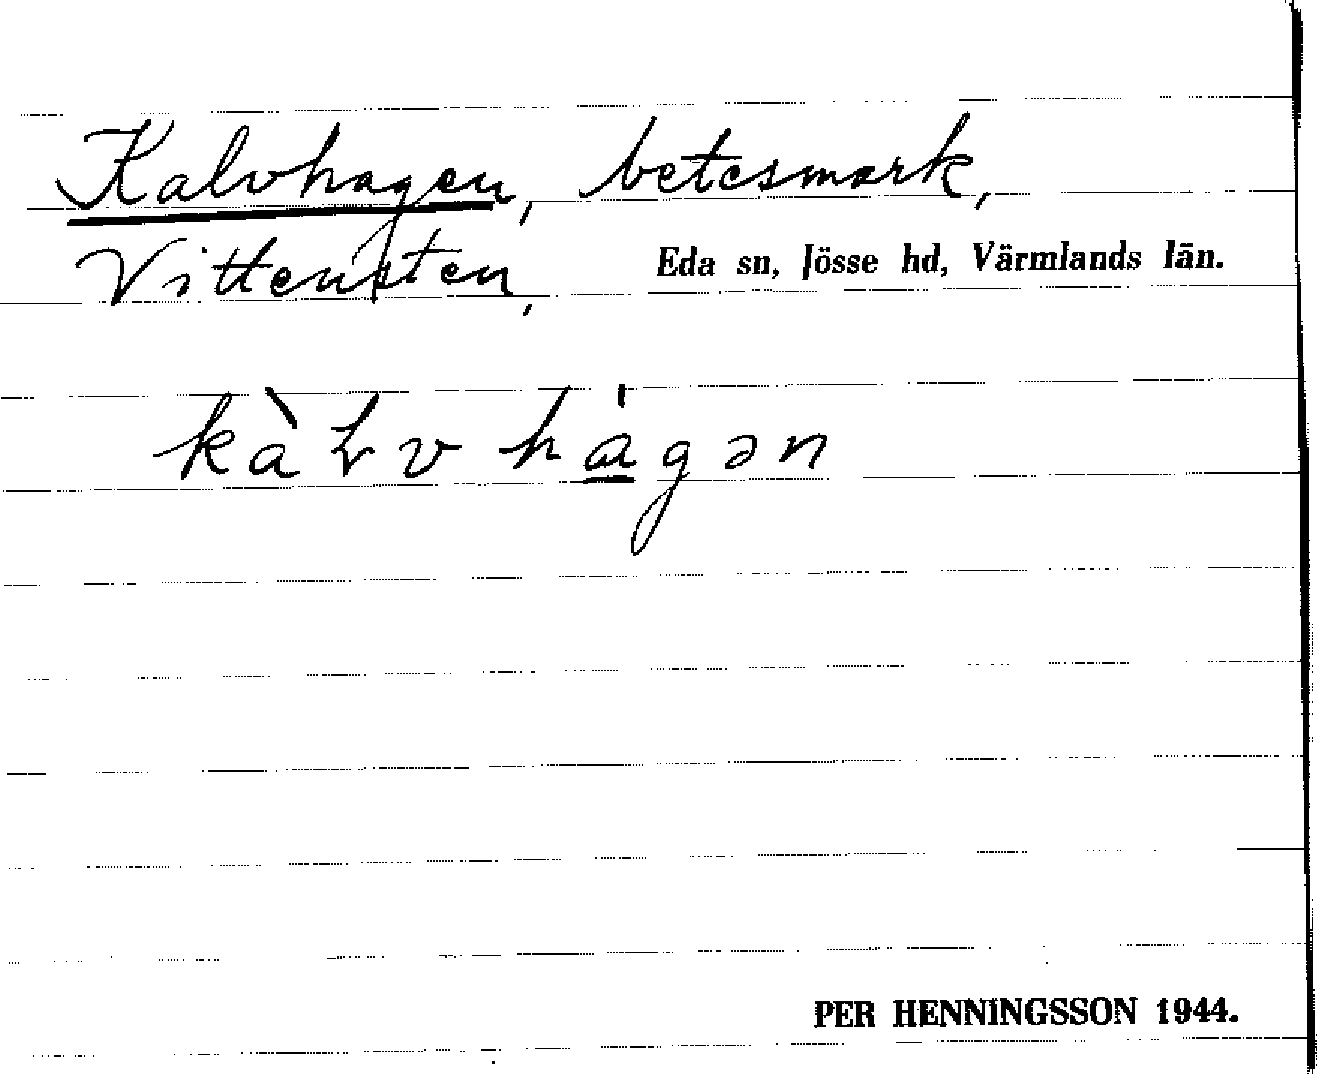 Kalvhagen, betesmark,
Vittensten, Eda sn, Jösse hd, Värmlands län.
kàƚv hágən
PER HENNINGSSON 1944.